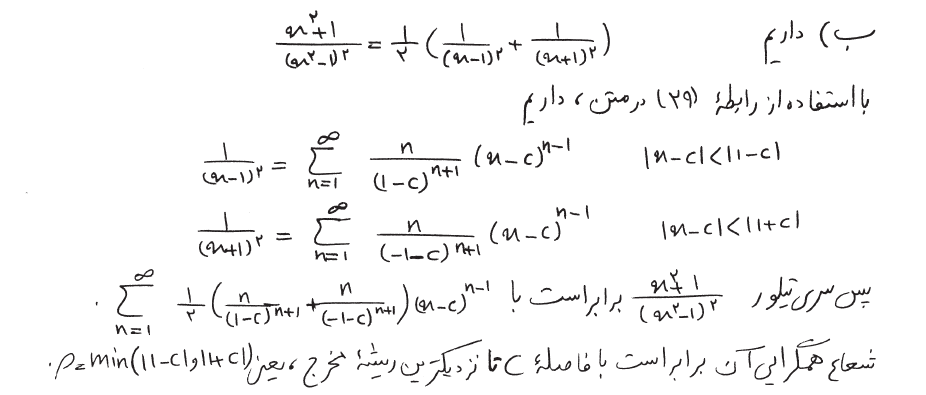 ب) داریم $\frac{x^۲+1}{(x^۲-1)^۲} = \frac{1}{۲} \left( \frac{1}{(x-1)^۲} + \frac{1}{(x+1)^۲} \right)$
با استفاده از رابطهٔ (۲۹) در متن، داریم
$\frac{1}{(x-1)^۲} = \sum_{n=1}^{\infty} \frac{n}{(1-c)^{n+1}} (x-c)^{n-1} \quad |x-c|<|1-c|$
$\frac{1}{(x+1)^۲} = \sum_{n=1}^{\infty} \frac{n}{(-1-c)^{n+1}} (x-c)^{n-1} \quad |x-c|<|1+c|$
پس سری تیلور $\frac{x^۲+1}{(x^۲-1)^۲}$ برابر است با $\sum_{n=1}^{\infty} \frac{1}{۲} \left( \frac{n}{(1-c)^{n+1}} + \frac{n}{(-1-c)^{n+1}} \right) (x-c)^{n-1}$ .
شعاع همگرایی آن برابر است با فاصلهٔ c تا نزدیکترین ریشهٔ مخرج، یعنی $\rho = \min(|1-c| و |1+c|)$.